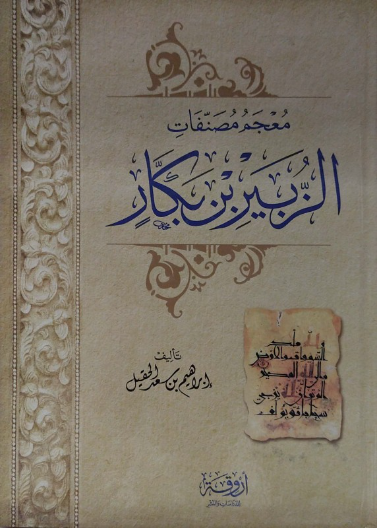 مُعْجَمُ مُصَنَّفَاتِ
الزُّبَيْرِ بْنِ بَكَّارٍ
تأليف
إبراهيم بن سعد الحقيل
أروقة
للدراسات والنشر